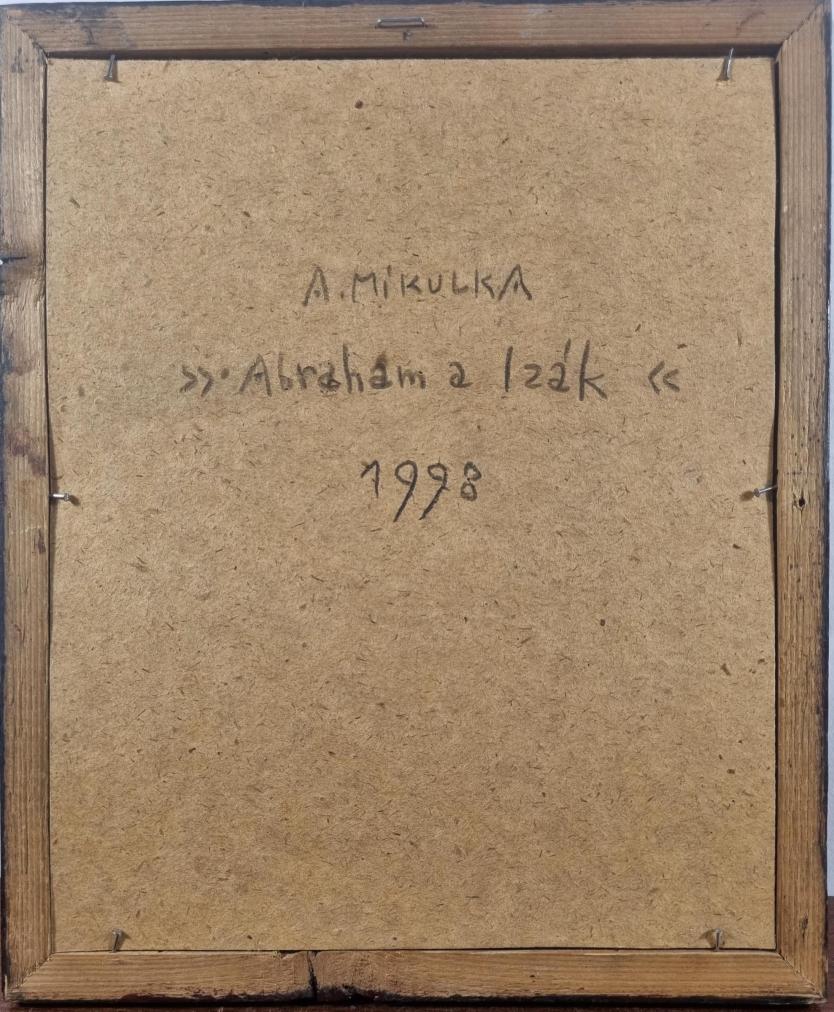 A. MiKULKA
>> Abraham a Izák <<
1998